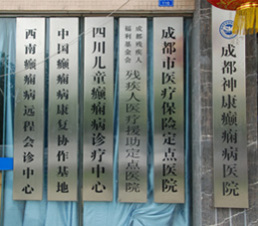 西南癫痫病远程会诊中心
中国癫痫病康复协作基地
四川儿童癫痫病诊疗中心
成都残疾人
福利基金会
残疾人医疗援助定点医院
成都市医疗保险定点医院
成都神康癫痫病医院